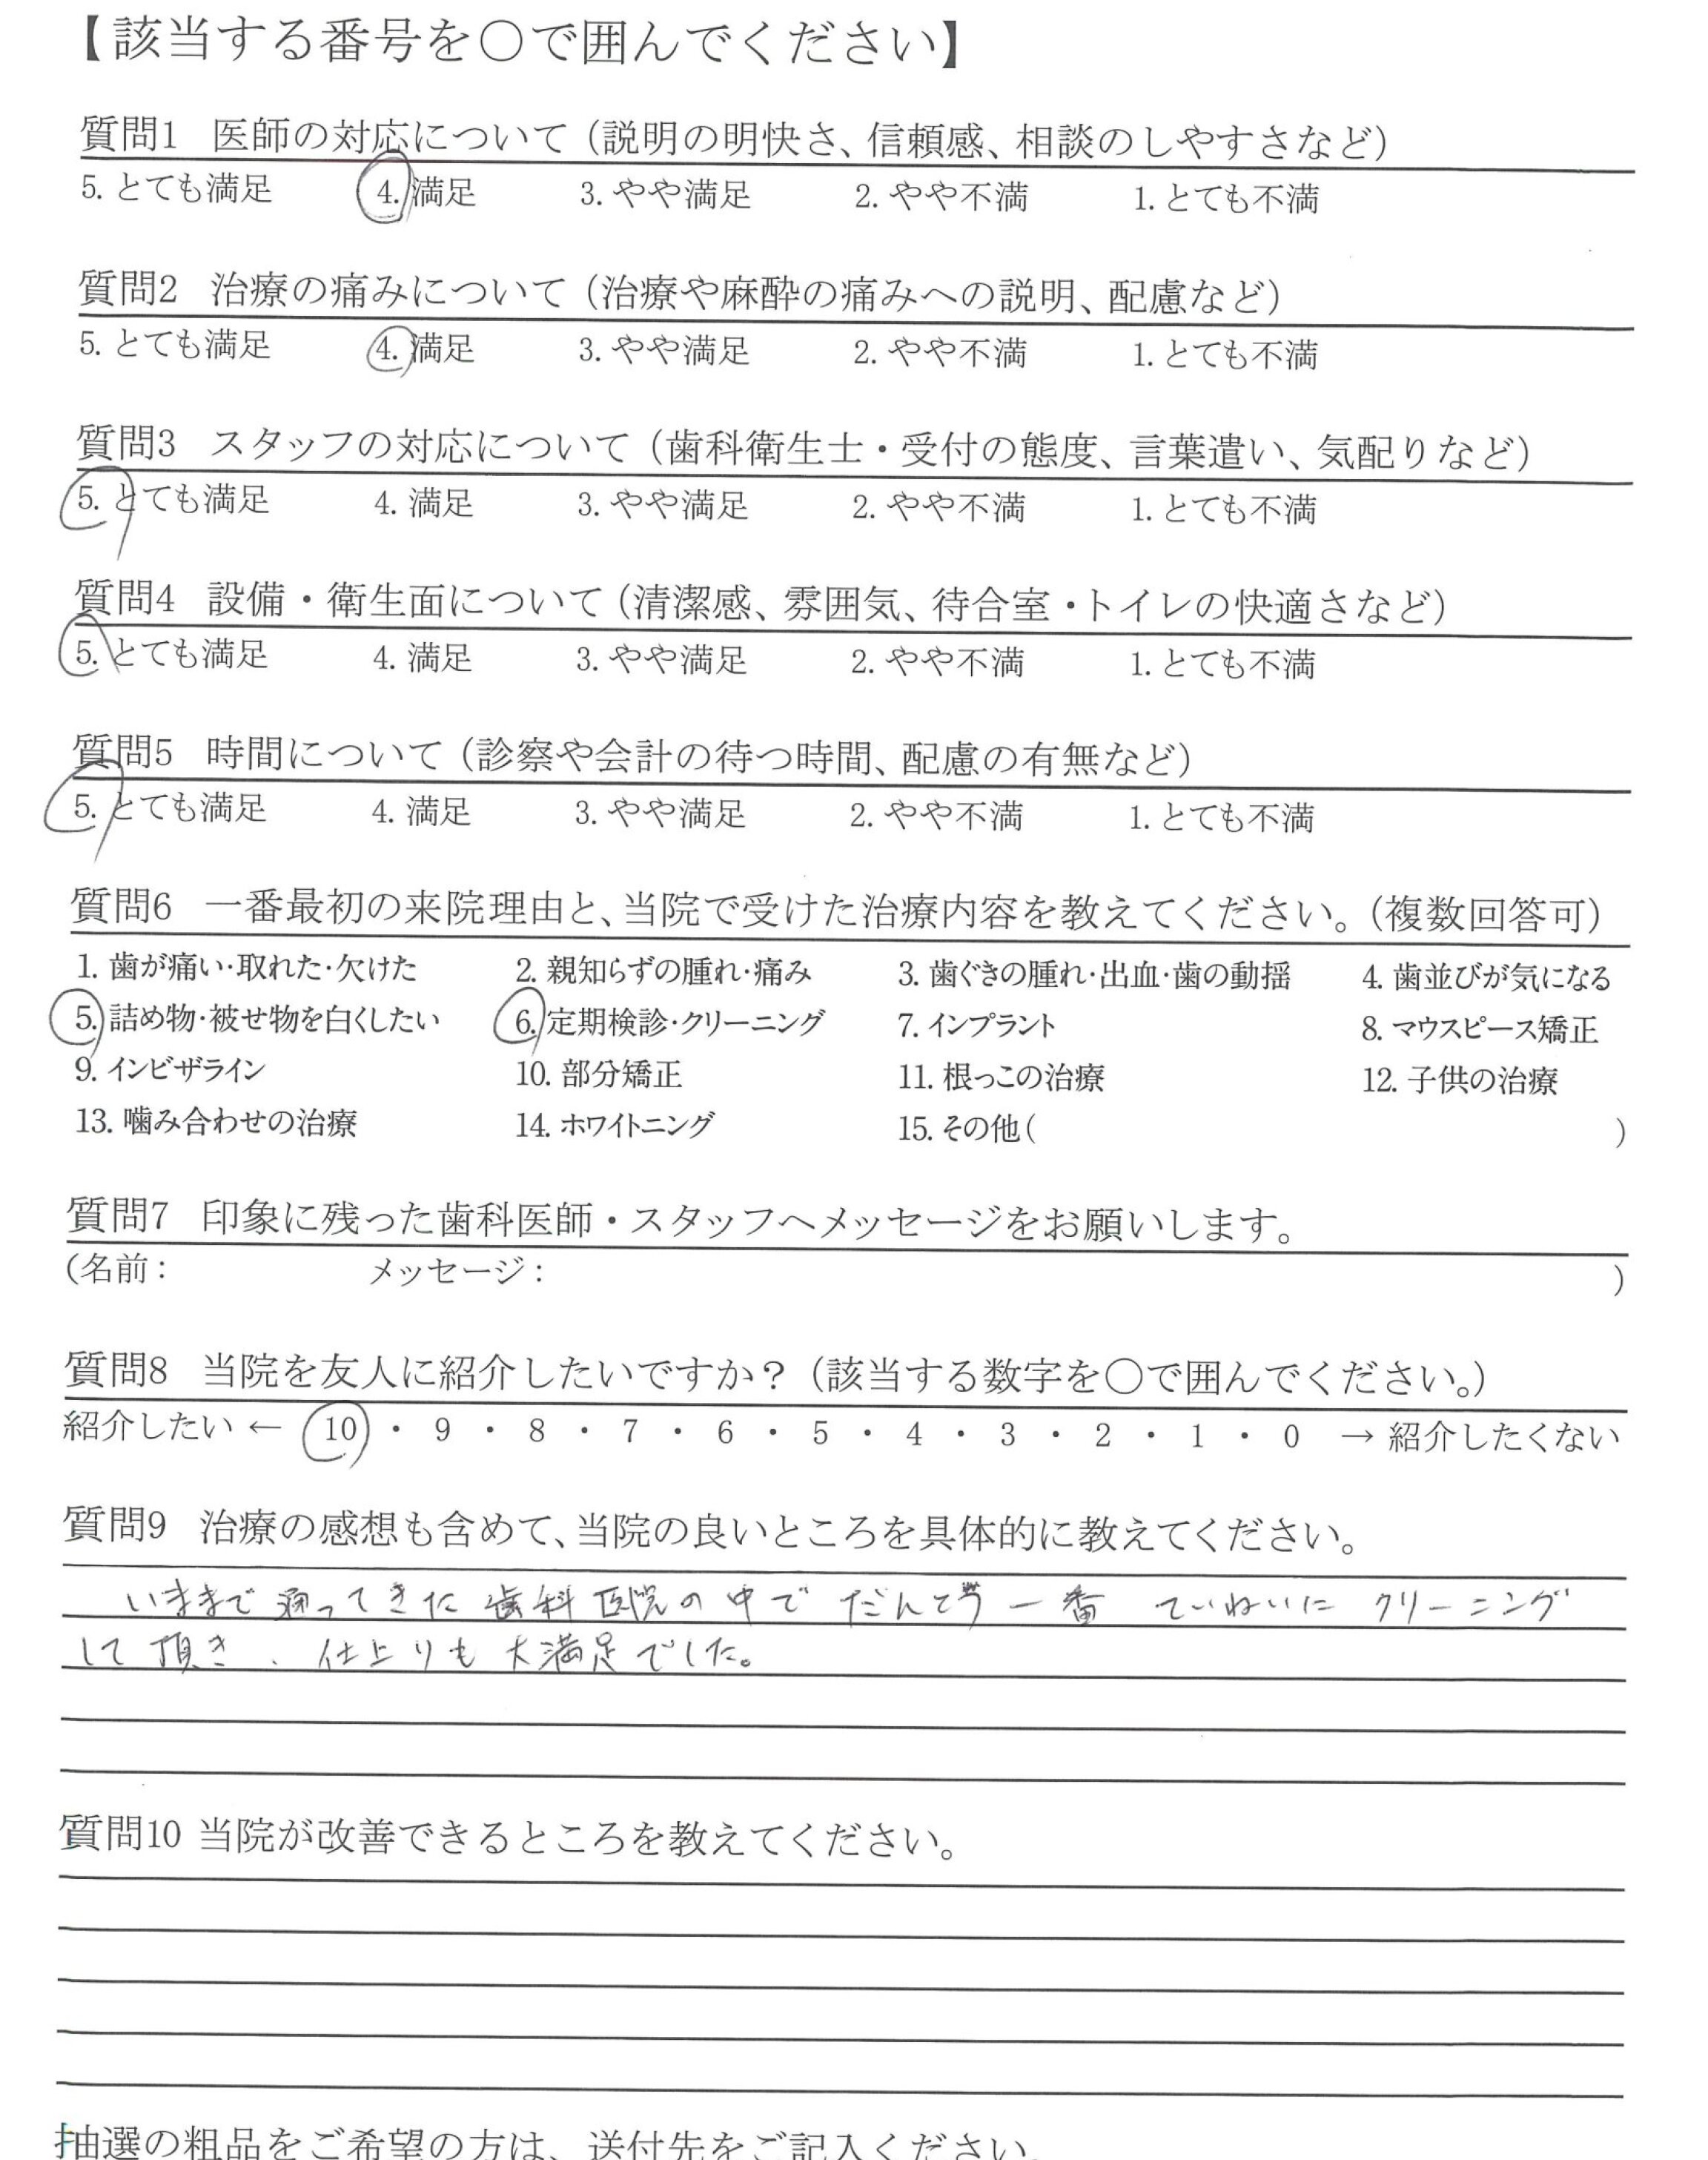 【該当する番号を〇で囲んでください】
質問1 医師の対応について（説明の明快さ、信頼感、相談のしやすさなど）
5. とても満足 4. 満足 3. やや満足 2. やや不満 1. とても不満
質問2 治療の痛みについて（治療や麻酔の痛みへの説明、配慮など）
5. とても満足 4. 満足 3. やや満足 2. やや不満 1. とても不満
質問3 スタッフの対応について（歯科衛生士・受付の態度、言葉遣い、気配りなど）
5. とても満足 4. 満足 3. やや満足 2. やや不満 1. とても不満
質問4 設備・衛生面について（清潔感、雰囲気、待合室・トイレの快適さなど）
5. とても満足 4. 満足 3. やや満足 2. やや不満 1. とても不満
質問5 時間について（診察や会計の待つ時間、配慮の有無など）
5. とても満足 4. 満足 3. やや満足 2. やや不満 1. とても不満
質問6 一番最初の来院理由と、当院で受けた治療内容を教えてください。（複数回答可）
1. 歯が痛い・取れた・欠けた 2. 親知らずの腫れ・痛み 3. 歯ぐきの腫れ・出血・歯の動揺 4. 歯並びが気になる
5. 詰め物・被せ物を白くしたい 6. 定期検診・クリーニング 7. インプラント 8. マウスピース矯正
9. インビザライン 10. 部分矯正 11. 根っこの治療 12. 子供の治療
13. 噛み合わせの治療 14. ホワイトニング 15. その他（ ）
質問7 印象に残った歯科医師・スタッフへメッセージをお願いします。
（名前： メッセージ： ）
質問8 当院を友人に紹介したいですか？（該当する数字を〇で囲んでください。）
紹介したい ← 10 ・ 9 ・ 8 ・ 7 ・ 6 ・ 5 ・ 4 ・ 3 ・ 2 ・ 1 ・ 0 → 紹介したくない
質問9 治療の感想も含めて、当院の良いところを具体的に教えてください。
いままで通ってきた歯科医院の中でだんとつ一番 ていねいにクリーニング
して頂き、仕上りも大満足でした。
質問10 当院が改善できるところを教えてください。
抽選の粗品をご希望の方は、送付先をご記入ください。